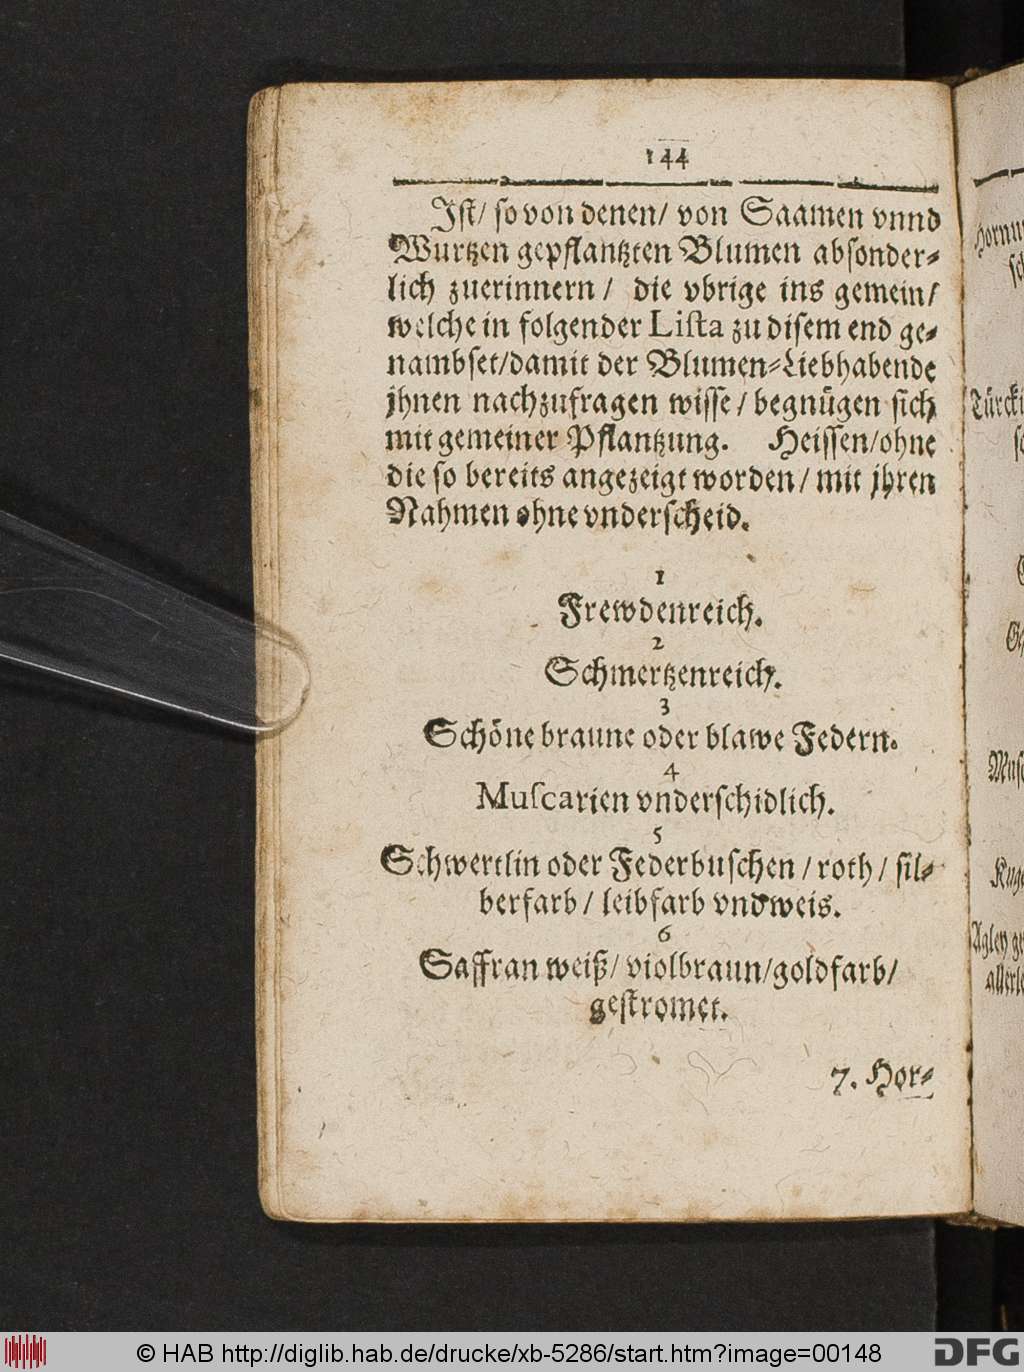 144
Ist/ so von denen/ von Saamen vnnd
Wurtzen gepflantzten Blumen absonder-
lich zuerinnern/ die vbrige ins gemein/
welche in folgender Lista zu disem end ge-
nambset/damit der Blumen-Liebhabende
jhnen nachzufragen wisse/ begnügen sich
mit gemeiner Pflantzung. Heissen/ohne
die so bereits angezeigt worden/ mit jhren
Nahmen ohne vnderscheid.
1
Frewdenreich.
2
Schmertzenreich.
3
Schöne braune oder blawe Federn.
4
Muscarien vnderschidlich.
5
Schwertlin oder Federbuschen/ roth/ sil-
berfarb/ leibfarb vnd weis.
6
Saffran weiß/ violbraun/goldfarb/
gestromet.
7. Hor-
Türcki
Agley
© HAB http://diglib.hab.de/drucke/xb-5286/start.htm?image=00148
DFG